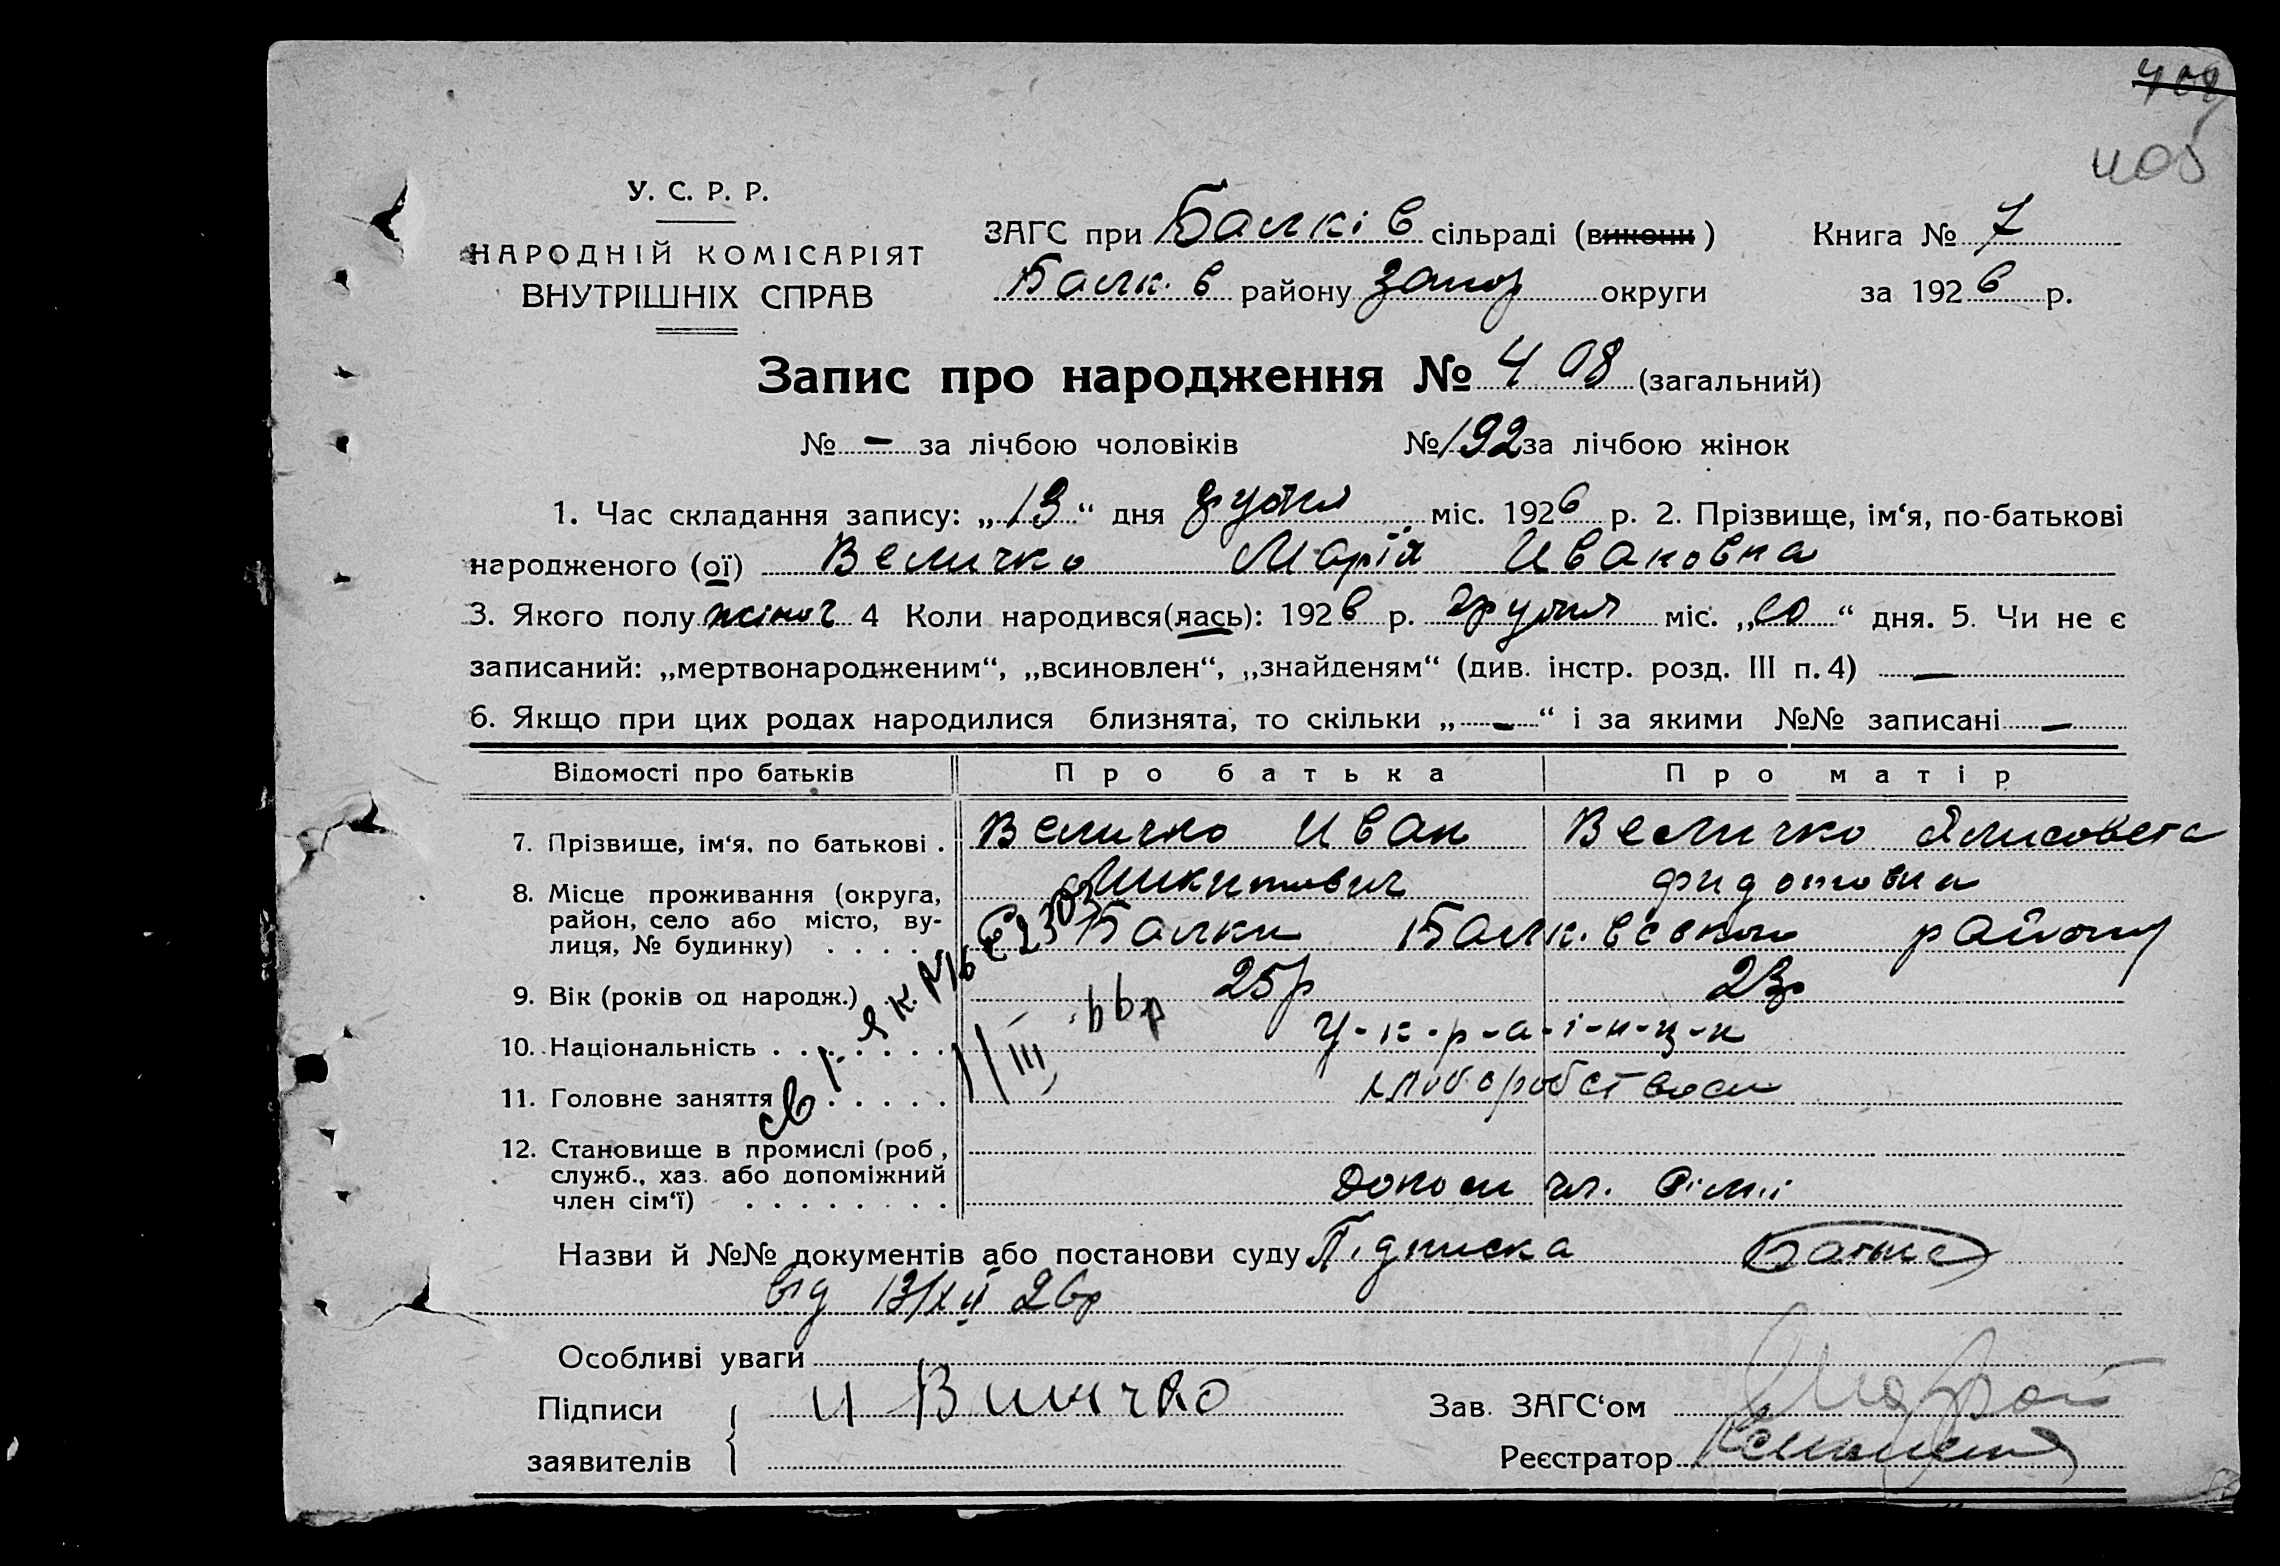 408
405
У. С. Р. Р.
НАРОДНІЙ КОМІСАРІЯТ
ВНУТРІШНІХ СПРАВ
ЗАГС при Балків сільраді (викони)
Балк. в району Запор округи
Книга № 7
за 1926 р.
Запис про народження № 408 (загальний)
№ – за лічбою чоловіків № 192 за лічбою жінок
1. Час складання запису: „13“ дня грудня міс. 1926 р. 2. Прізвище, ім‘я, по-батькові
народженого (ої) Величко Марія Ивановна
3. Якого полу жіноч 4 Коли народився(лась): 1926 р. грудня міс. „10“ дня. 5. Чи не є
записаний: „мертвонародженим“, „всиновлен“, „знайденям“ (див. інстр. розд. III п. 4) —
6. Якщо при цих родах народилися близнята, то скільки „–“ і за якими №№ записані –
Відомості про батьків Про батька Про матір
7. Прізвище, ім‘я, по батькові . Величко Иван Величко Элисовета
Микитович Фидотовна
8. Місце проживання (округа,
район, село або місто, ву-
лиця, № будинку) . . . . Балки Балк. вського району
9. Вік (років од народж.) . 25р 23р
св. р. ЯК №
III 66р
10. Національність . . . . . . . У-к-р-а-і-н-ц-и
11. Головне заняття . . . . . хлоборобством
12. Становище в промислі (роб,
служб., хаз. або допоміжний
член сім‘ї) . . . . . . . . Допом чл. сімії
Назви й №№ документів або постанови суду Підписка Батька
від 13/XII 26р
Особливі уваги
Підписи
заявителів
И Виличко
Зав. ЗАГС‘ом
Реєстратор